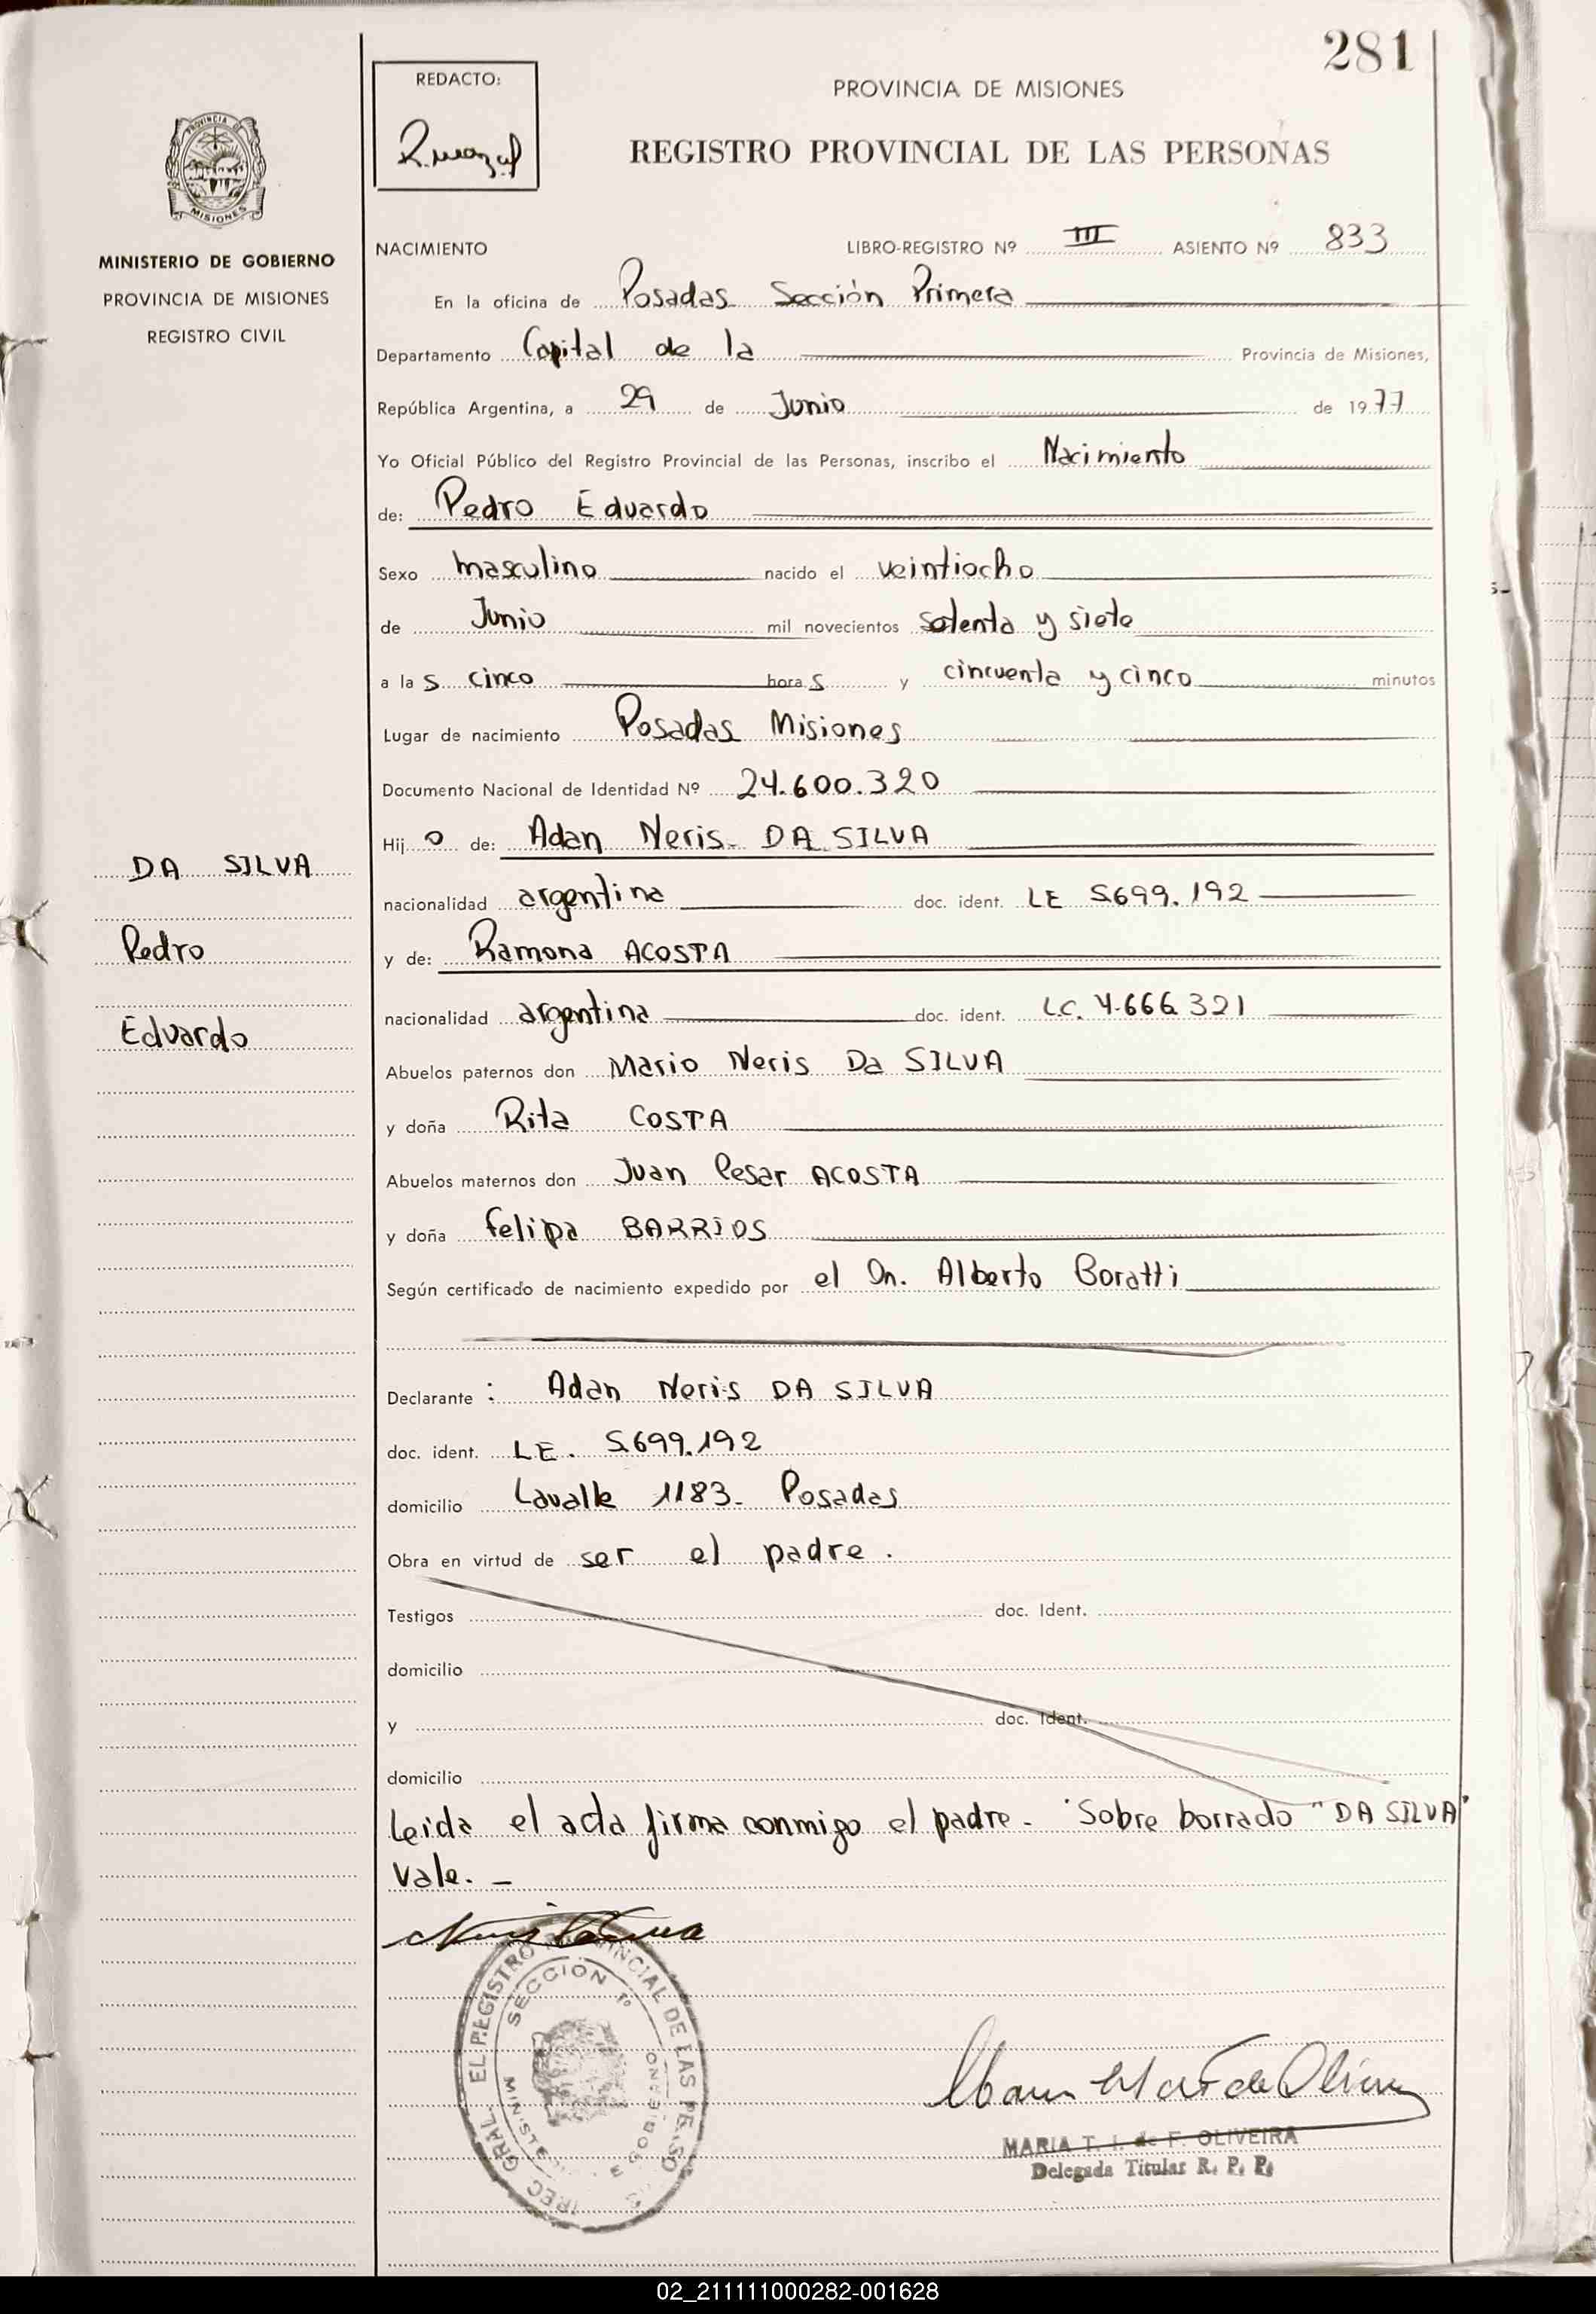 281
REDACTO:
PROVINCIA DE MISIONES
REGISTRO PROVINCIAL DE LAS PERSONAS
PROVINCIA DE
MISIONES
MINISTERIO DE GOBIERNO
PROVINCIA DE MISIONES
REGISTRO CIVIL
NACIMIENTO LIBRO-REGISTRO Nº III ASIENTO Nº 833
En la oficina de Posadas Sección Primera
Departamento Capital de la Provincia de Misiones,
República Argentina, a 29 de Junio de 1977
Yo Oficial Público del Registro Provincial de las Personas, inscribo el Nacimiento
de: Pedro Eduardo
Sexo masculino nacido el veintiocho
de Junio mil novecientos setenta y siete
a las cinco horas y cincuenta y cinco minutos
Lugar de nacimiento Posadas Misiones
Documento Nacional de Identidad Nº 24.600.320
Hijo de: Adan Neris DA SILVA
nacionalidad argentina doc. ident. LE 5699.192
y de: Ramona ACOSTA
nacionalidad argentina doc. ident. LC. 4.666.321
Abuelos paternos don Mario Neris Da SILVA
y doña Rita COSTA
Abuelos maternos don Juan Cesar ACOSTA
y doña Felipa BARRIOS
Según certificado de nacimiento expedido por el Dn. Alberto Boratti
DA SILVA
Pedro
Eduardo
Declarante : Adan Neris DA SILVA
doc. ident. LE. 5.699.192
domicilio Lavalle 1183- Posadas
Obra en virtud de ser el padre.
Testigos doc. Ident.
domicilio
y doc. Ident.
domicilio
Leida el acta firma conmigo el padre- "Sobre borrado "DA SILVA"
Vale. -
SECCION 1º
MARIA T. I. de F. OLIVEIRA
Delegada Titular R. P. P.
02_211111000282-001628